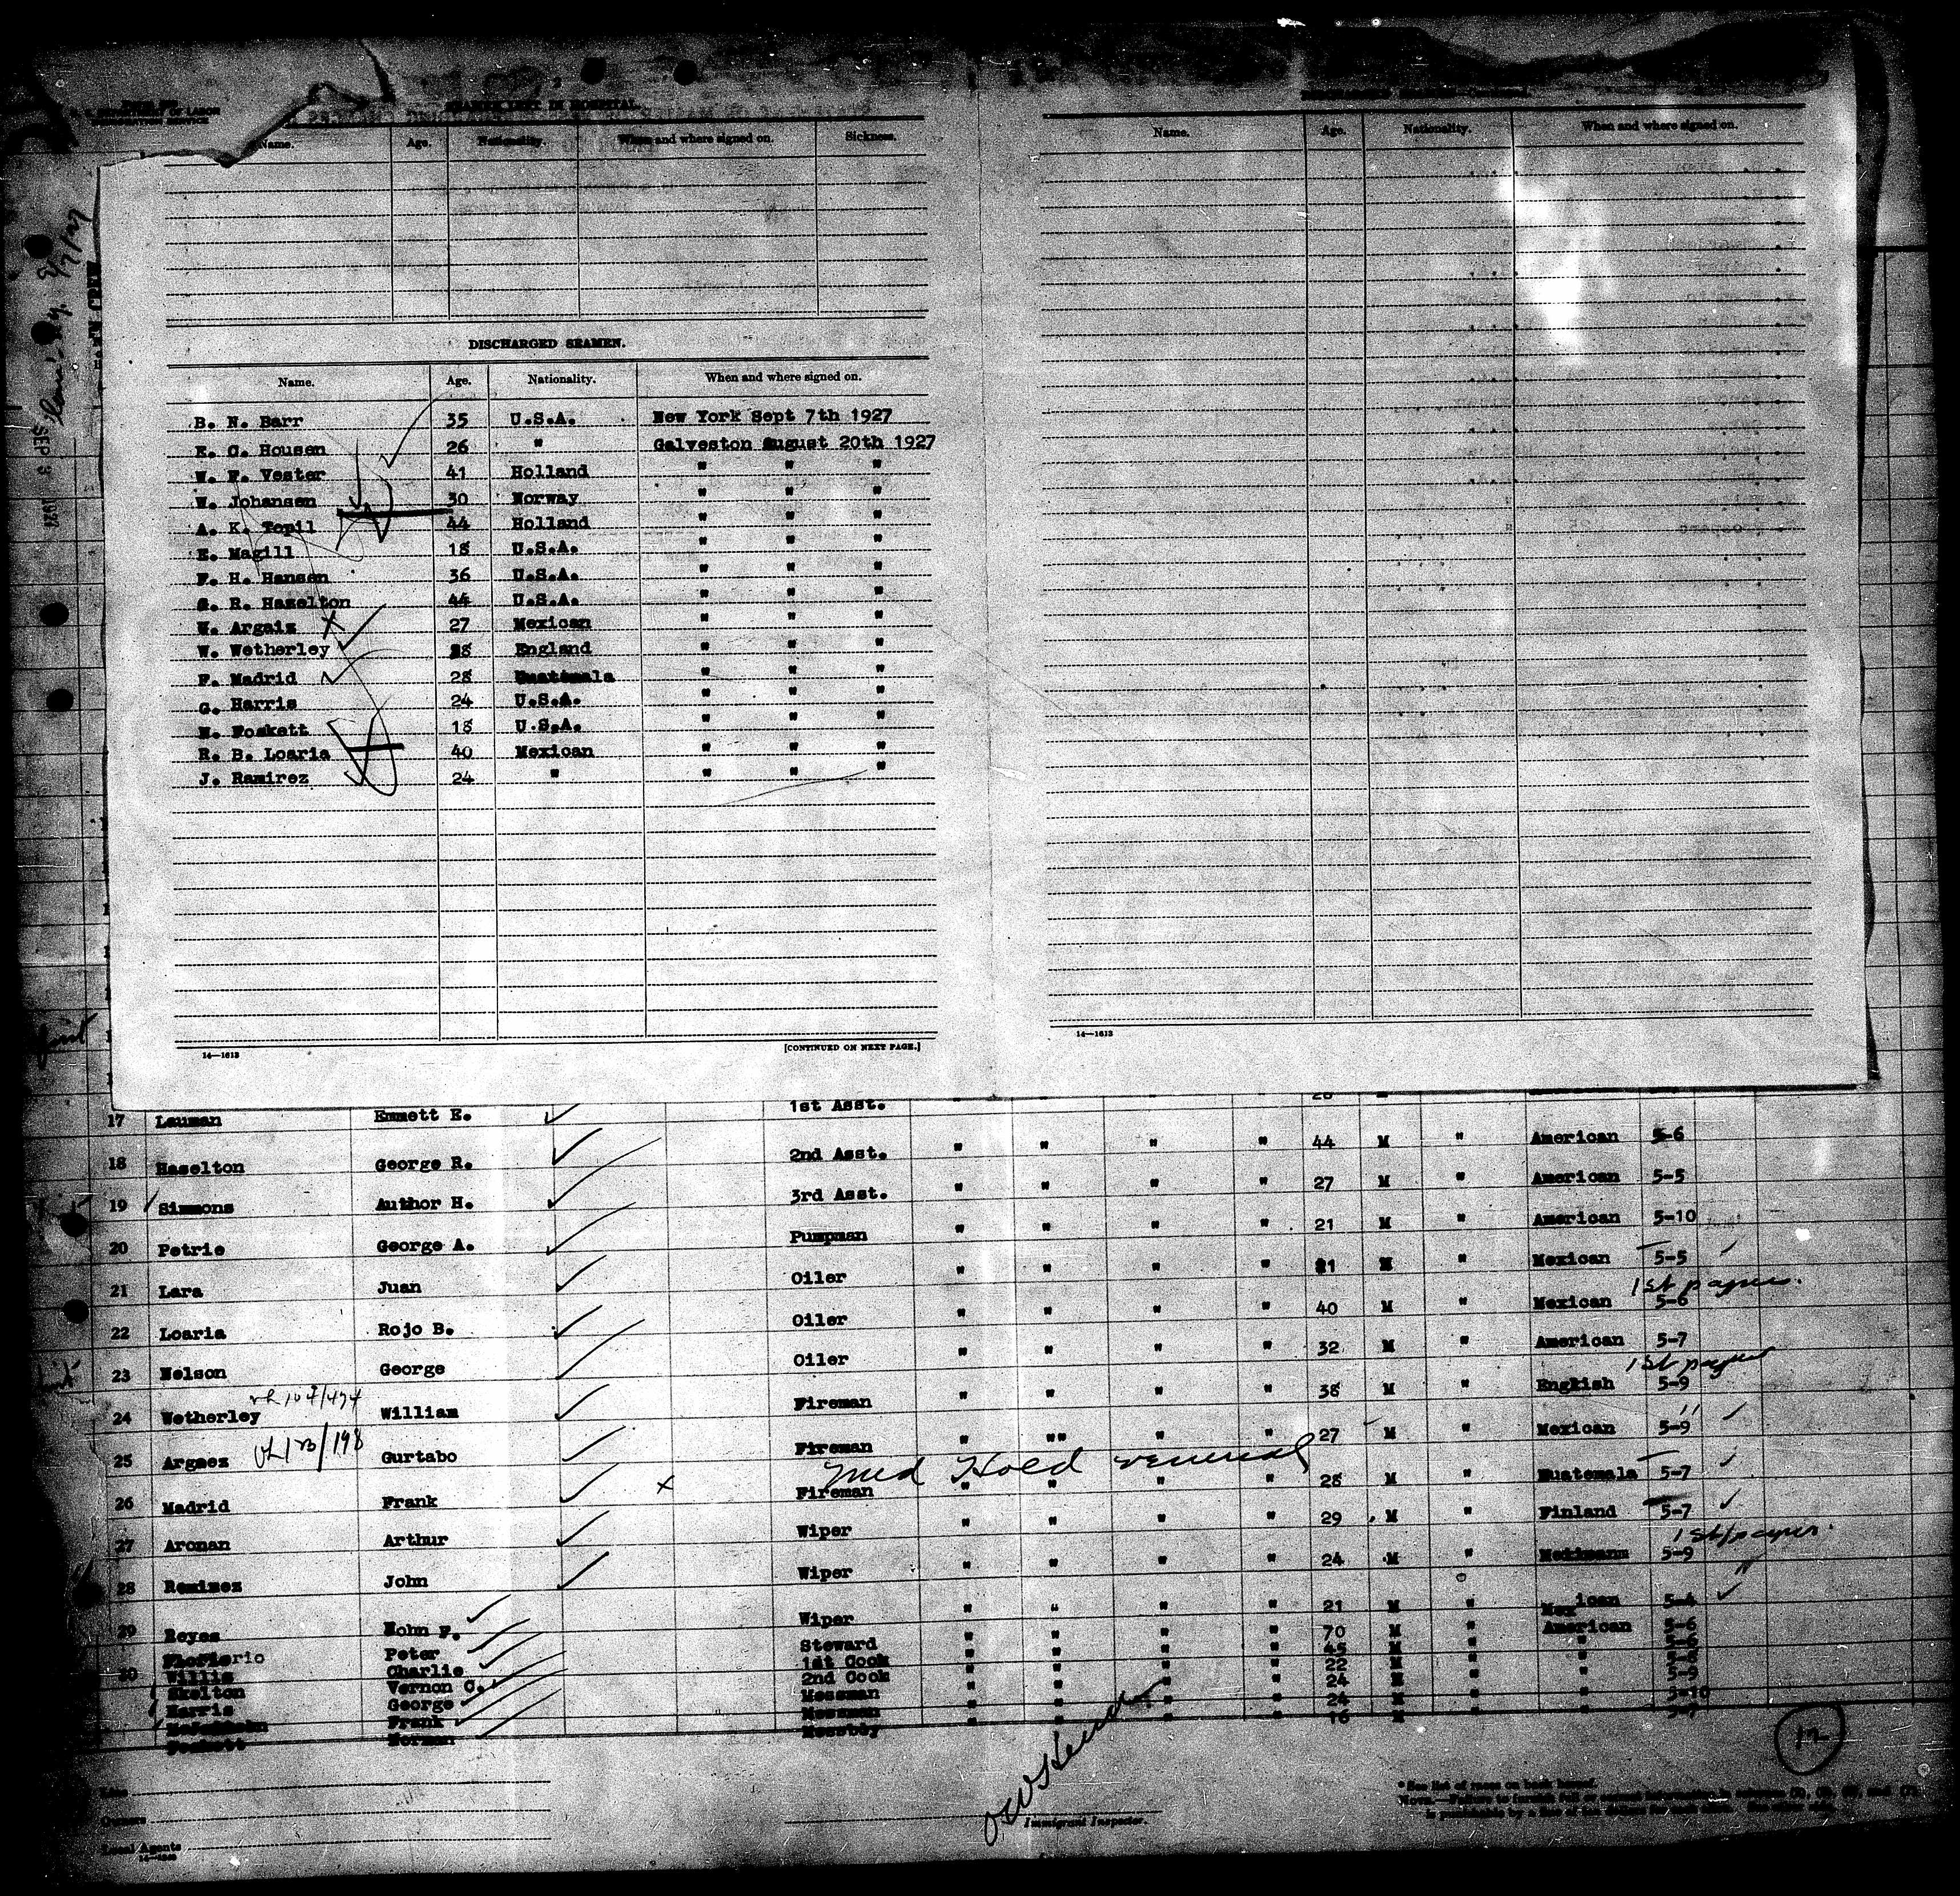 DEPARTMENT OF LABOR
SEAMEN LEFT IN HOSPITAL.
Name. Age. Nationality. When and where signed on. Sickness.
DISCHARGED SEAMEN.
Name. Age. Nationality. When and where signed on.
B. N. Barr 35 U.S.A. New York Sept 7th 1927
E. C. Housen 26 " Galveston August 20th 1927
W. F. Vester 41 Holland " " "
W. Johansen 30 Norway " " "
A. K. Topil 44 Holland " " "
E. Magill 18 U.S.A. " " "
F. H. Hansen 36 U.S.A. " " "
G. R. Haselton 44 U.S.A. " " "
W. Argaiz X 27 Mexican " " "
W. Wetherley 38 England " " "
F. Madrid 28 Guatemala " " "
G. Harris 24 U.S.A. " " "
N. Foskett 18 U.S.A. " " "
R. B. Loaria 40 Mexican " " "
J. Ramirez 24 " " " "
14—1613 [CONTINUED ON NEXT PAGE.]
Name. Age. Nationality. When and where signed on.
14—1613
SEP 3
17 Lauman Emmett E. 1st Asst.
18 Haselton George R. 2nd Asst. " " " " 44 M " American 5-6
19 Simmons Author H. 3rd Asst. " " " " 27 M " American 5-5
20 Petrie George A. Pumpman " " " " 21 M " American 5-10
21 Lara Juan Oiler " " " " 21 M " Mexican 5-5
1st papers.
22 Loaria Rojo B. Oiler " " " " 40 M " Mexican 5-6
23 Nelson George Oiler " " " " 32 M " American 5-7
1st papers
24 Wetherley William Fireman " " " " 38 M " English 5-9
25 Argaez Gurtabo Fireman " "" " " 27 M " Mexican 5-9
Med Hold
26 Madrid Frank X Fireman " " " " 28 M " Guatemala 5-7
27 Aronan Arthur Wiper " " " " 29 M " Finland 5-7
1st papers.
28 Remires John Wiper " " " " 24 M " 5-9
29 Reyes John F. Wiper " " " " 21 M " Mexican 5-4
Peter Steward " " " " 70 M " American 5-6
30 Willis Charlie 1st Cook " " " " 45 M " " 5-6
Skelton Vernon C. 2nd Cook " " " " 22 M
Harris George Messman " " " " 24 M " " 5-9
Frank Messman " " " " 24 M " " 5-10
Foskett Norman Messboy " " " " 16 M
12
Line
Owners
Local Agents
Immigrant Inspector.
* See list of races on back hereof.